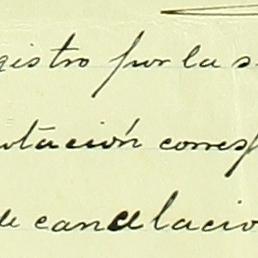 gistro por la s
otación corresp
de cancelacio